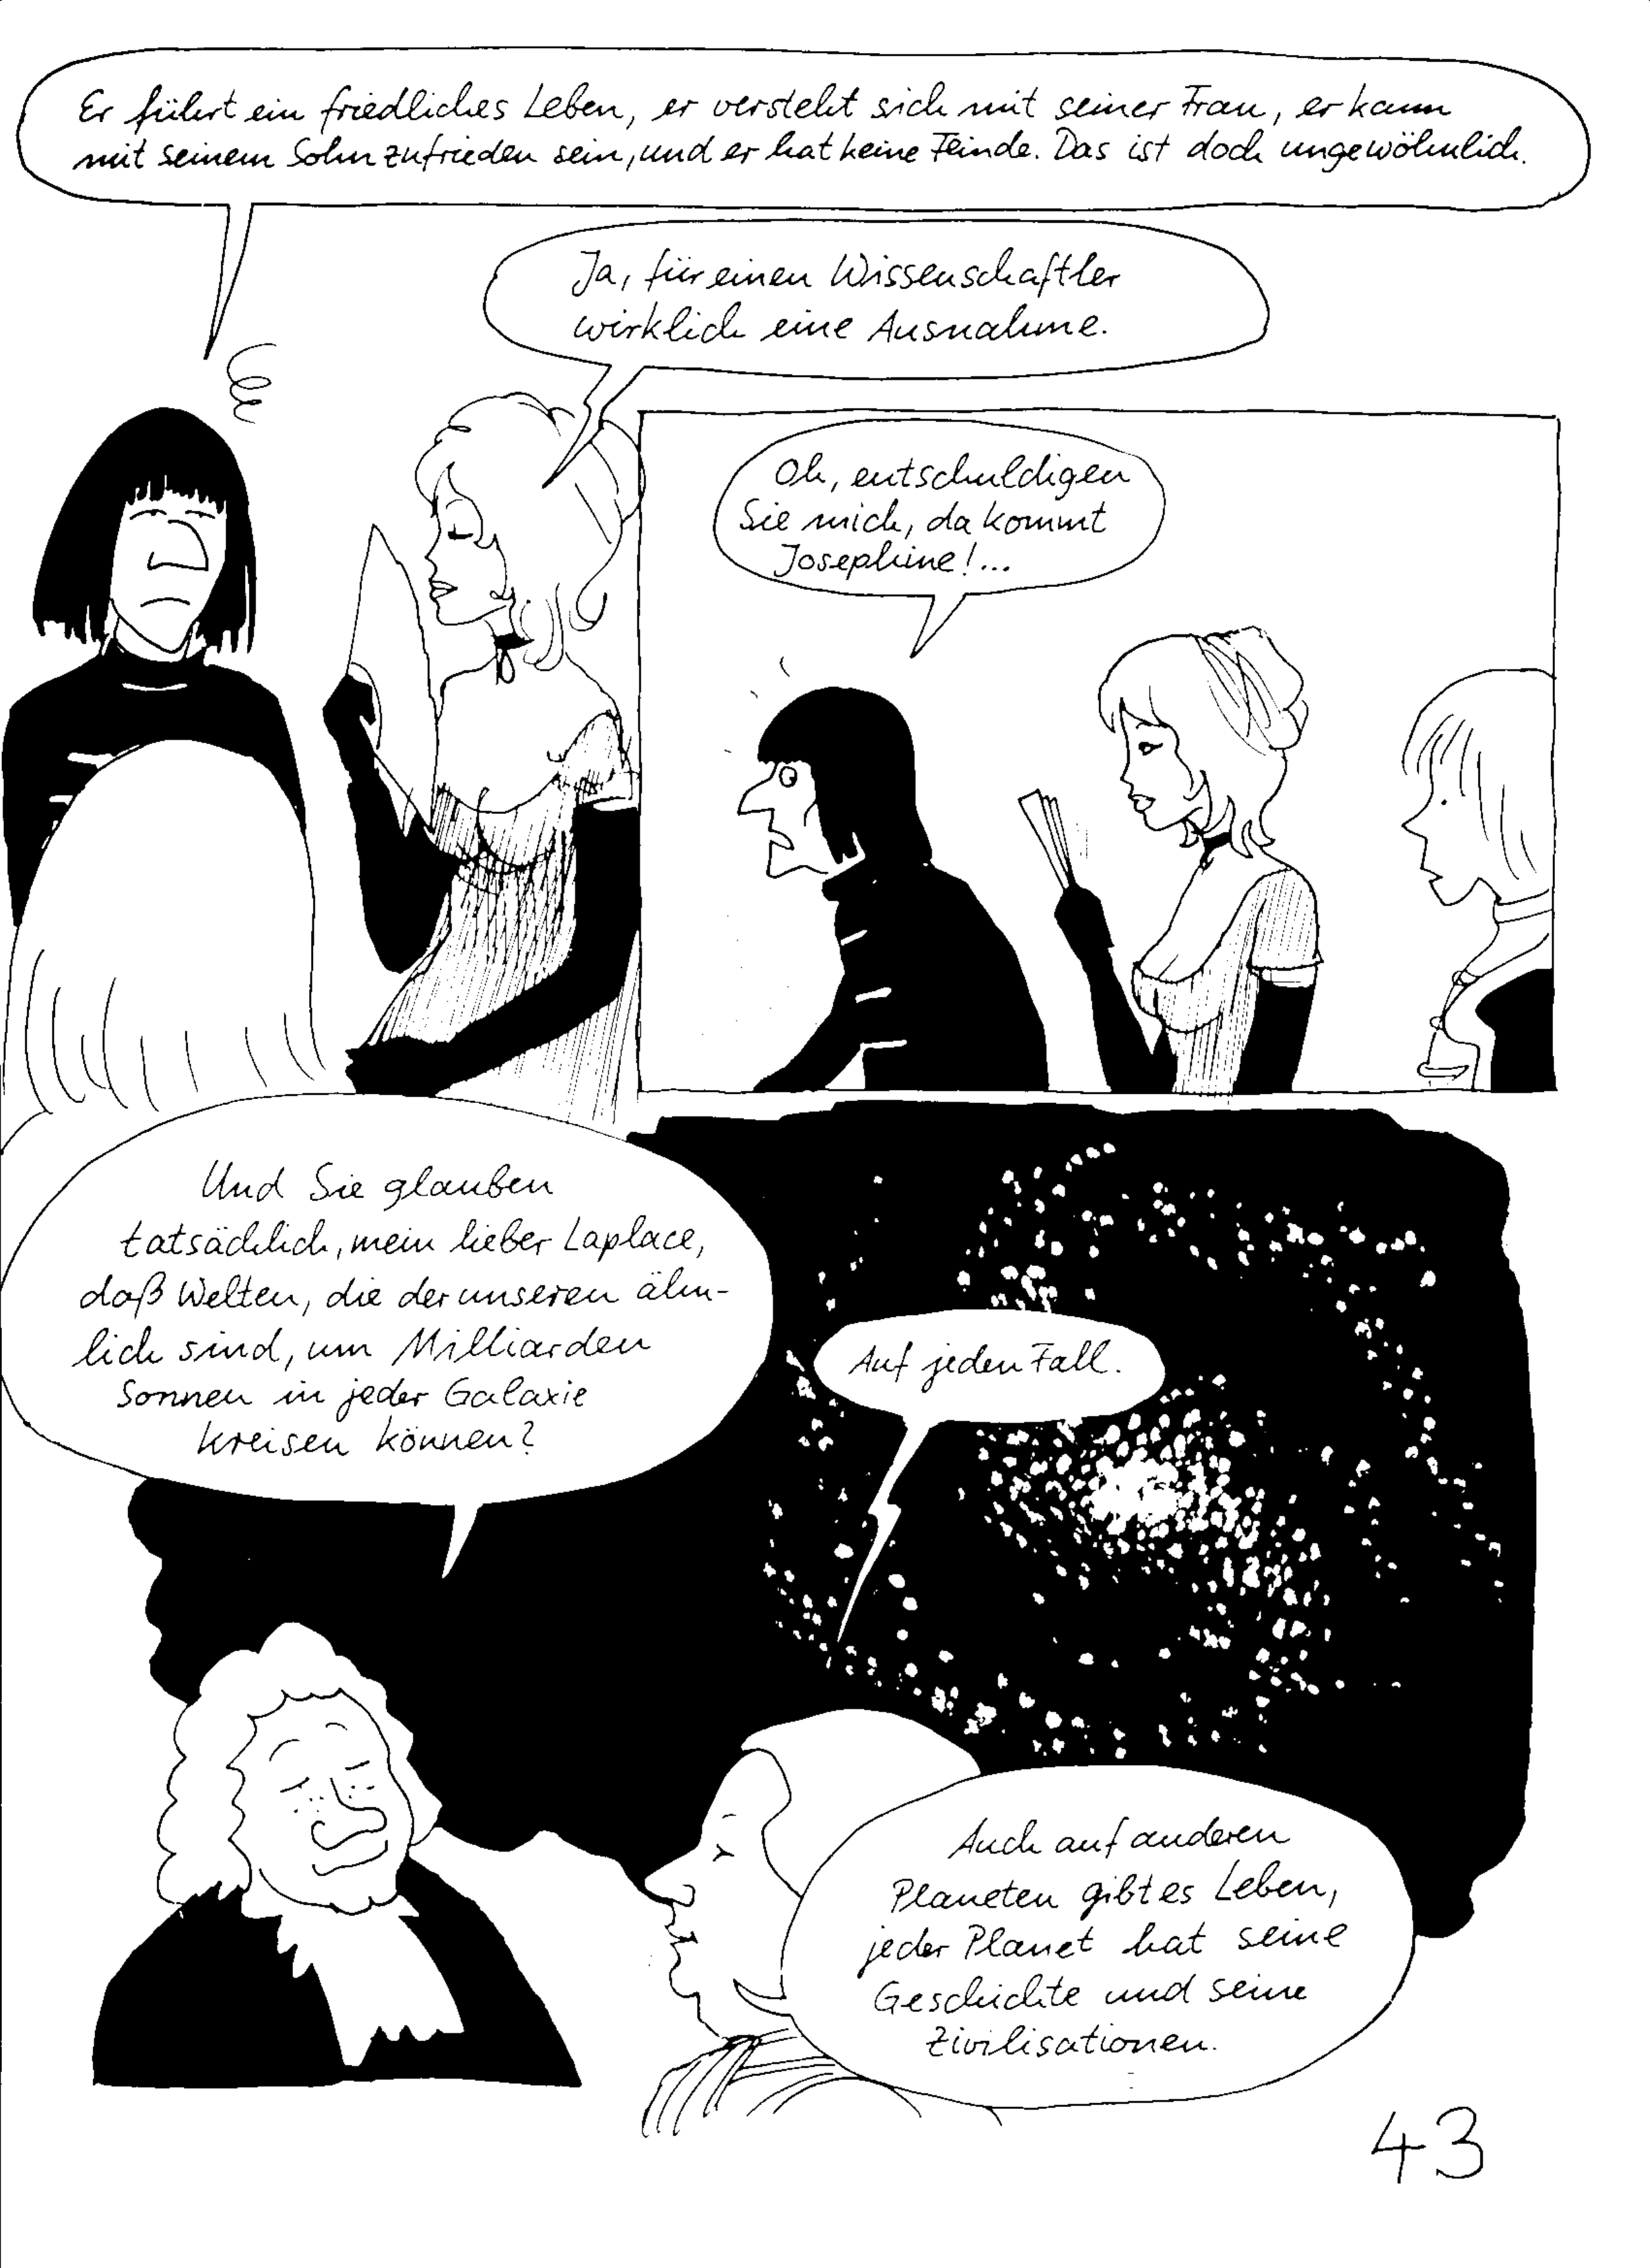 Er führt ein friedliches Leben, er versteht sich mit seiner Frau, er kann
mit seinem Sohn zufrieden sein, und er hat keine Feinde. Das ist doch ungewöhnlich.
Ja, für einen Wissenschaftler
wirklich eine Ausnahme.
Oh, entschuldigen
Sie mich, da kommt
Josephine!...
Und Sie glauben
tatsächlich, mein lieber Laplace,
daß Welten, die der unseren ähn-
lich sind, um Milliarden
Sonnen in jeder Galaxie
kreisen können?
Auf jeden Fall.
Auch auf anderen
Planeten gibt es Leben,
jeder Planet hat seine
Geschichte und seine
Zivilisationen.
43